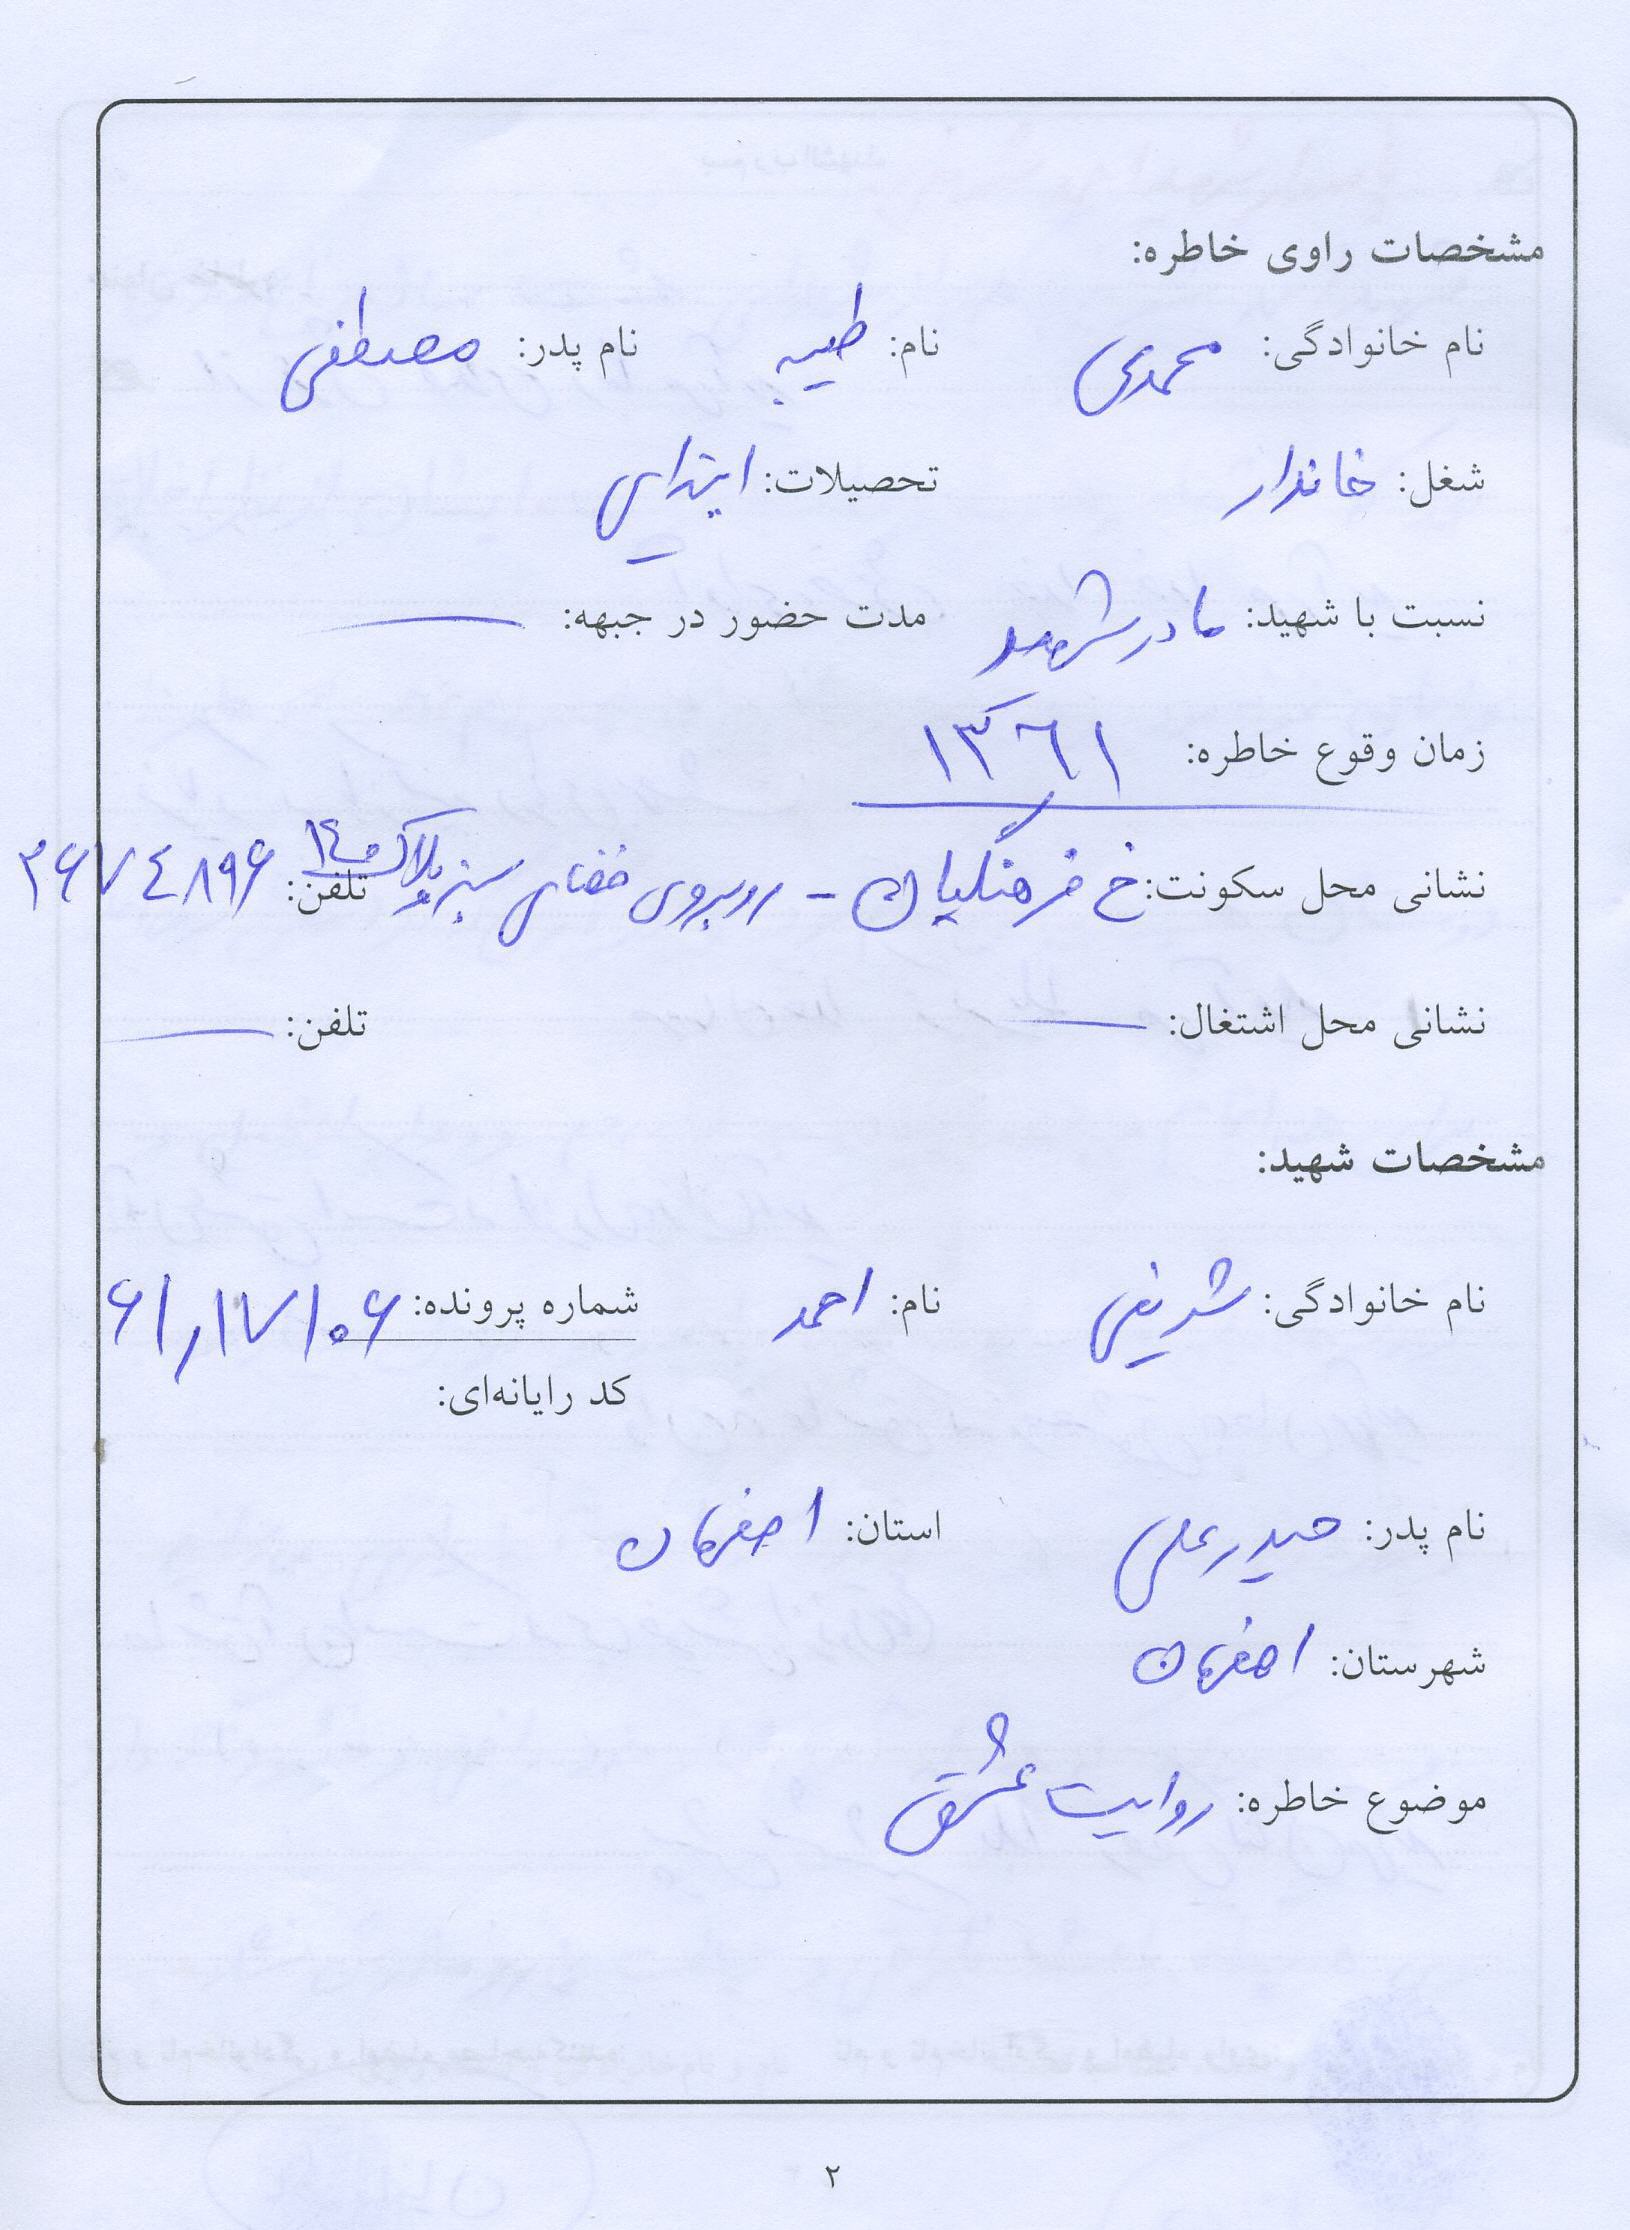 مشخصات راوی خاطره:
نام خانوادگی: محمدی نام: طیبه نام پدر: مصطفی
شغل: خاندار تحصیلات: ابتدایی
نسبت با شهید: مادر شهید مدت حضور در جبهه: ـــ
زمان وقوع خاطره: ۱۳۶۱
نشانی محل سکونت: خ فرهنگیان - روبروی فضای سبز پلاک ۱۴۰ تلفن: ۳۶۷۴۸۹۶
نشانی محل اشتغال: ـــ تلفن: ـــ
مشخصات شهید:
نام خانوادگی: شریفی نام: احمد شماره پرونده: ۶۱,۱۷۱۰۶
کد رایانه‌ای:
نام پدر: حیدرعلی استان: اصفهان
شهرستان: اصفهان
موضوع خاطره: روایت عشق
۲